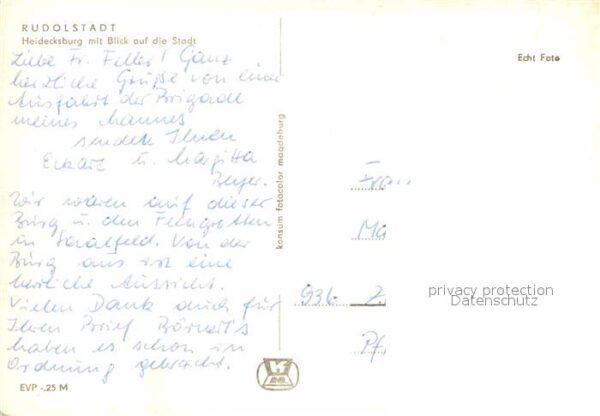 RUDOLSTADT
Heidecksburg mit Blick auf die Stadt
Liebe Fr. Feller! Ganz
herzliche Grüße von einer
Ausfahrt der Brigade
meines Mannes
senden Ihnen
Eckart u. Margitta
Beyer.
Wir waren auf dieser
Burg u. den Feengrotten
in Saalfeld. Von der
Burg aus ist eine
herrliche Aussicht.
Vielen Dank auch für
Ihren Brief
haben es schon in
Ordnung gebracht.
EVP -.25 M
konsum fotocolor magdeburg
Echt Foto
Frau
Ma
936 Z
Pf
privacy protection
Datenschutz